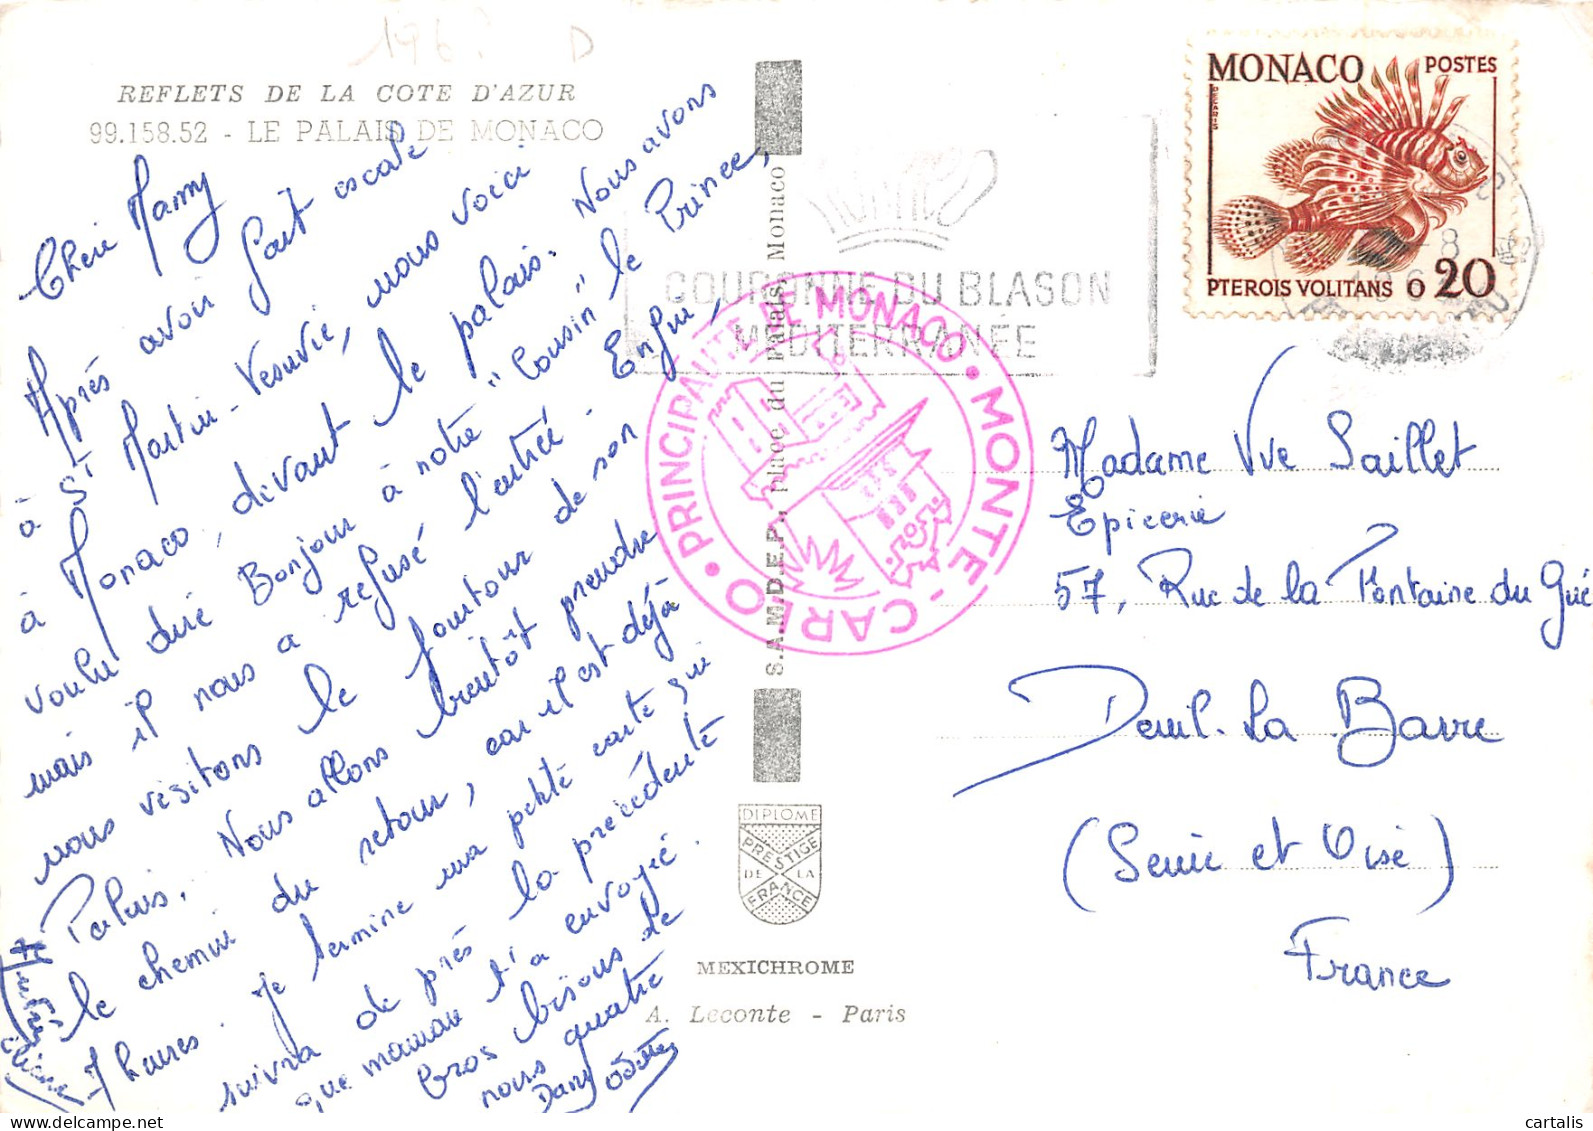 196? D
REFLETS DE LA COTE D'AZUR
99.158.52 - LE PALAIS DE MONACO
Chère Mamy
Après avoir fait escale
à St Martin-Vésuvie, nous voici
à Monaco, devant le palais. Nous avons
voulu dire Bonjour à notre "Cousin" le Prince,
mais il nous a refusé l'entrée. Enfin,
nous visitons le pourtour de son
Palais. Nous allons bientôt prendre
le chemin du retour, car il est déjà
7 heures. Je termine ma petite carte qui
suivra de près la précédente
que maman t'a envoyée.
Gros bisous de
nous quatre
Dany Odette
S.A.M.D.E.P., place du Palais, Monaco
DIPLOME
PRESTIGE
DE LA
FRANCE
MEXICHROME
A. Leconte - Paris
COURONNE DU BLASON
MEDITERRANÉE
PRINCIPAUTÉ DE MONACO • MONTE-CARLO •
MONACO POSTES
DECARIS
PTEROIS VOLITANS 20
-8
196
Madame Vve Saillet
Epicerie
57, Rue de la Fontaine du Gué
Deuil-La Barre
(Seine et Oise)
France
cartalis